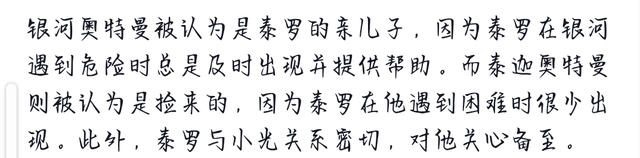 银河奥特曼被认为是泰罗的亲儿子，因为泰罗在银河
遇到危险时总是及时出现并提供帮助。而泰迦奥特曼
则被认为是捡来的，因为泰罗在他遇到困难时很少出
现。此外，泰罗与小光关系密切，对他关心备至。